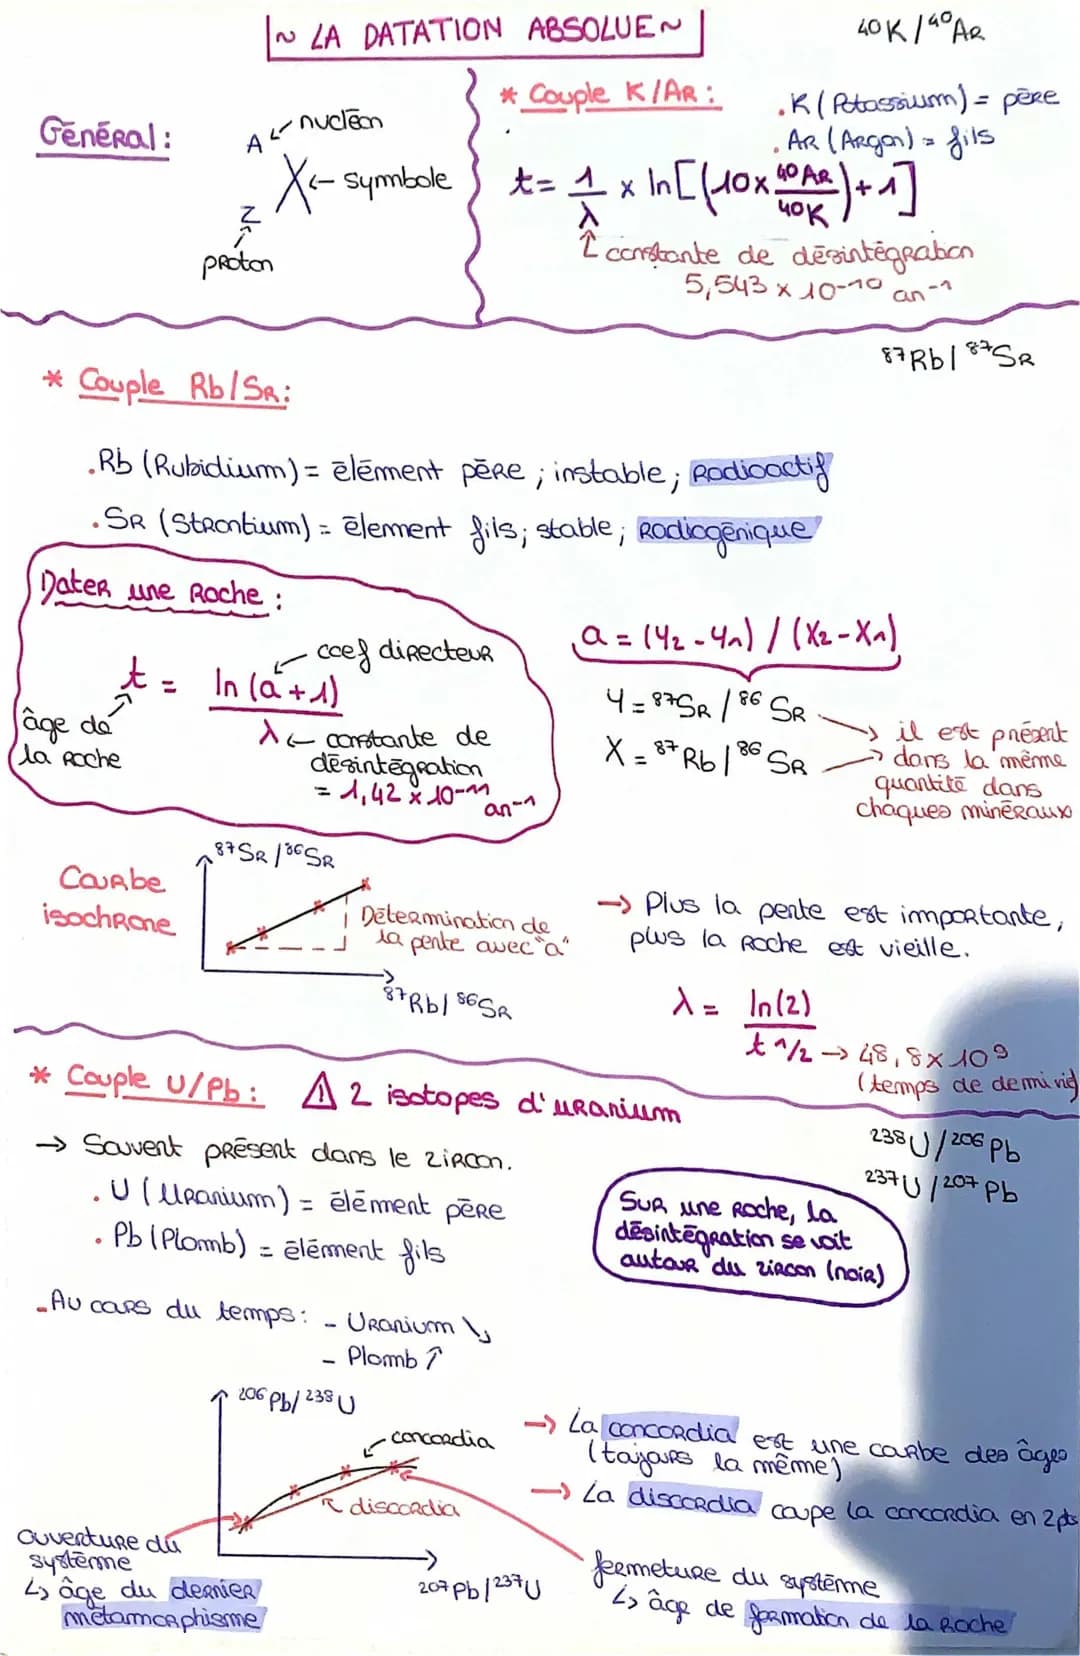 ~ LA DATATION ABSOLUE ~
40K / 40AR
Général :
A ← nucléon
X ← symbole
Z
proton
* Couple K/AR :
. K (Potassium) = père
. AR (Argon) = fils
t = 1/λ x ln[(10x 40AR/40K) + 1]
↑ constante de désintégration
5,543 x 10-10 an-1
87Rb / 87SR
* Couple Rb/SR :
. Rb (Rubidium) = élément père ; instable ; Radioactif
. SR (Strontium) = élement fils ; stable ; Radiogénique
Dater une Roche :
t = ln(a+1) / λ
← coef directeur
âge de la roche
λ ← constante de désintégration
= 1,42 x 10-11 an-1
a = (Y2 - Y1) / (X2 - X1)
Y = 87SR / 86SR
X = 87Rb / 86SR
→ il est présent
→ dans la même
quantité dans
chaques minéraux
Courbe
isochrone
87SR / 86SR
Détermination de
la pente avec "a"
87Rb / 86SR
→ Plus la pente est importante,
plus la roche est vieille.
λ = ln(2) / t 1/2 → 48,8 x 10 9
(temps de demi vie)
* Couple U/Pb : ⚠ 2 isotopes d'uranium
→ Souvent présent dans le zircon.
238U / 206Pb
237U / 207Pb
. U (Uranium) = élément père
. Pb (Plomb) = élément fils
Sur une roche, la
désintégration se voit
autour du zircon (noir)
- Au cours du temps : - Uranium ↘
- Plomb ↑
206Pb / 238U
concordia
discordia
207Pb / 237U
→ La concordia est une courbe des âges
(toujours la même)
→ La discordia coupe la concordia en 2 pts
ouverture du
système
↳ âge du dernier
métamorphisme
fermeture du système
↳ âge de formation de la roche